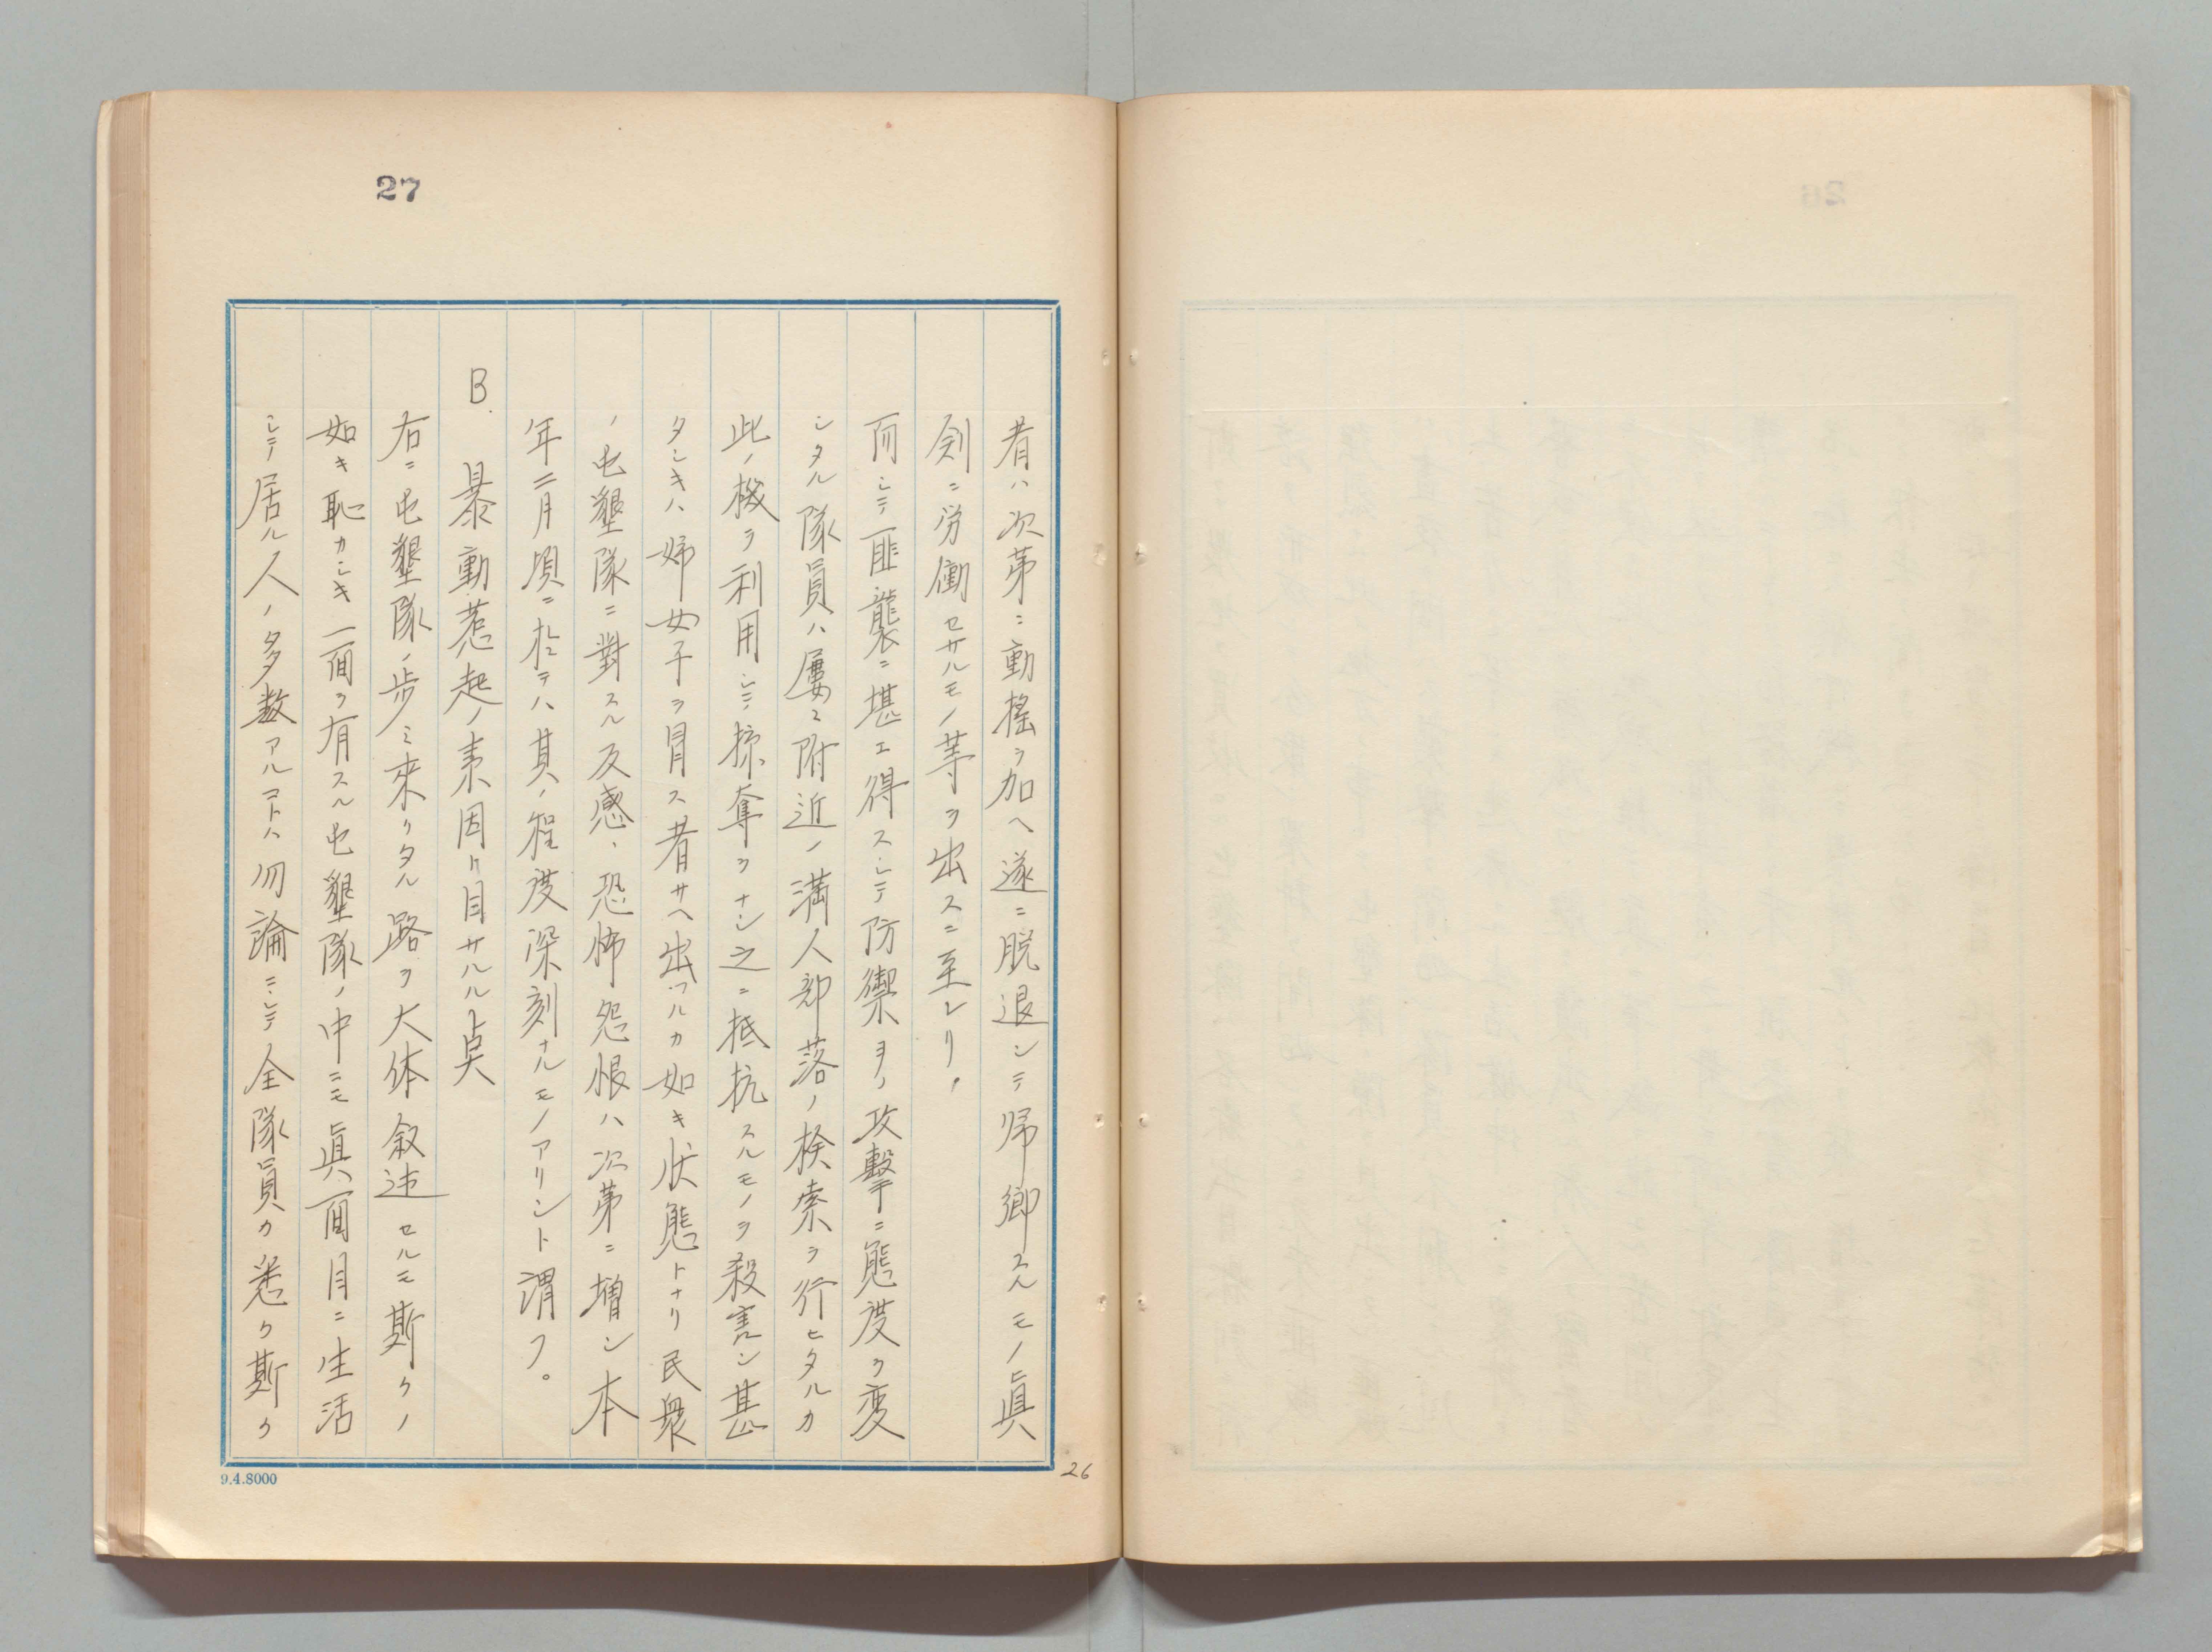 27
者ハ次第ニ動揺ヲ加ヘ遂ニ脱退シテ帰郷スルモノ眞
剣ニ労働セサルモノ等ヲ出スニ至レリ、
而シテ匪襲ニ堪エ得スシテ防禦ヨリ攻撃ニ態度ヲ変
シタル隊員ハ屢々附近ノ満人部落ノ検索ヲ行ヒタルカ
此ノ機ヲ利用シテ掠奪ヲナシ之ニ抵抗スルモノヲ殺害シ甚
タシキハ婦女子ヲ冒ス者サヘ出ツルカ如キ状態トナリ民衆
ノ屯墾隊ニ對スル反感、恐怖怨恨ハ次第ニ増シ本
年二月頃ニ於テハ其ノ程度深刻ナルモノアリシト謂フ。
B. 暴動惹起ノ素因ト目サルル点
右ニ屯墾隊ノ歩ミ来リタル路ヲ大体叙述セルモ斯クノ
如キ恥カシキ一面ヲ有スル屯墾隊ノ中ニモ眞面目ニ生活
シテ居ル人ノ多数アルコトハ勿論ニシテ全隊員カ悉ク斯ク
9.4.8000
26